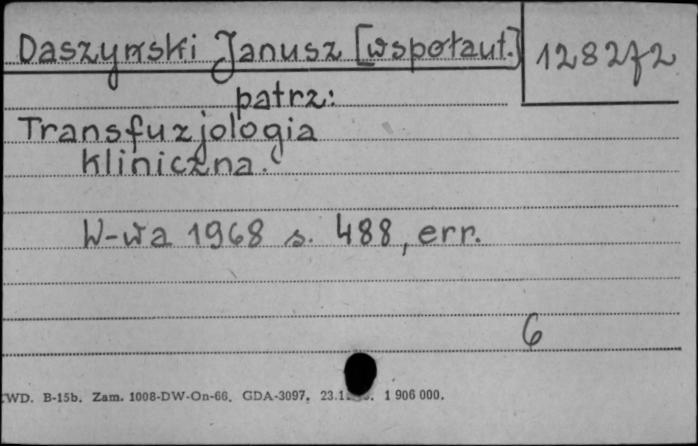 Daszyński Janusz [współaut.] 128272
patrz:
Transfuzjologia
kliniczna.
W-wa 1968 s. 488, err.
6
WD. B-15b. Zam. 1008-DW-On-66. GDA-3097. 1 906 000.